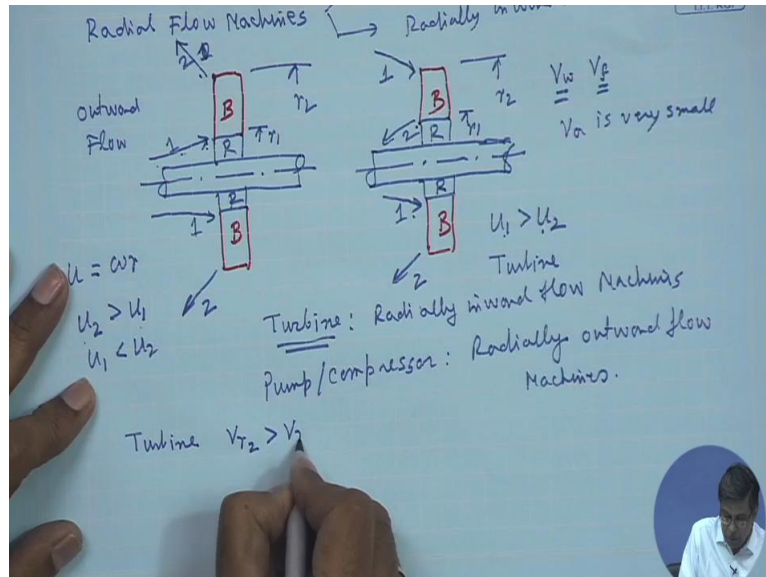 Radial Flow Machines
Radially inward
2
outward
Flow
B
r2
1
r1
R
R
B
1
2
1
B
r2
r1
2
R
R
1
B
2
Vw Vf
Va is very small
U = ωr
U2 > U1
U1 < U2
U1 > U2
Turbine
Turbine: Radially inward flow Machines
Pump/Compressor: Radially outward flow
Machines.
Turbine Vr2 > V